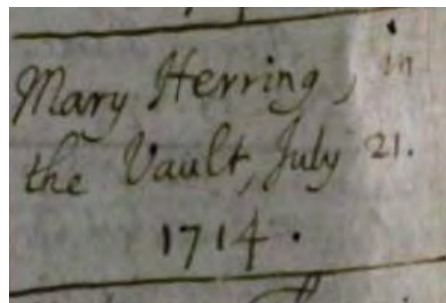 Mary Herring, in
the Vault, July 21.
1714.